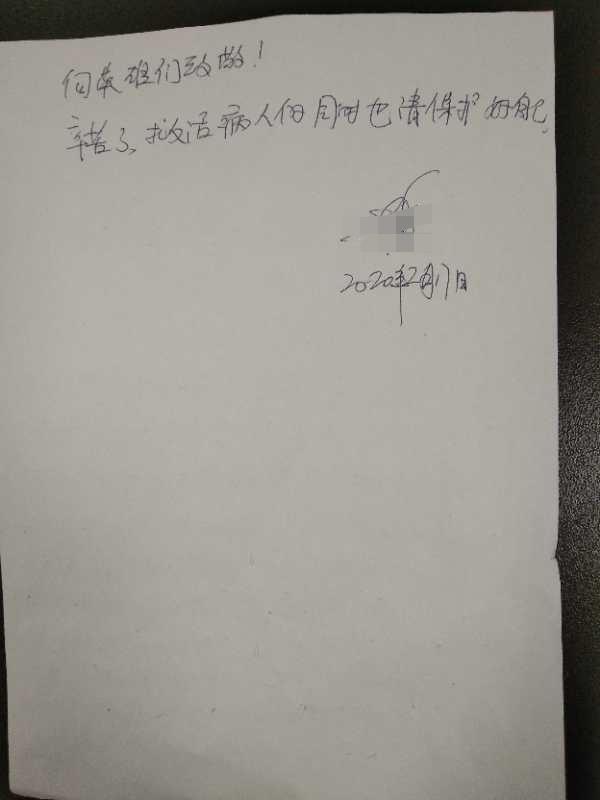 向英雄们致敬!
辛苦了,救治病人的同时也请保护好自己,
2020年2月17日